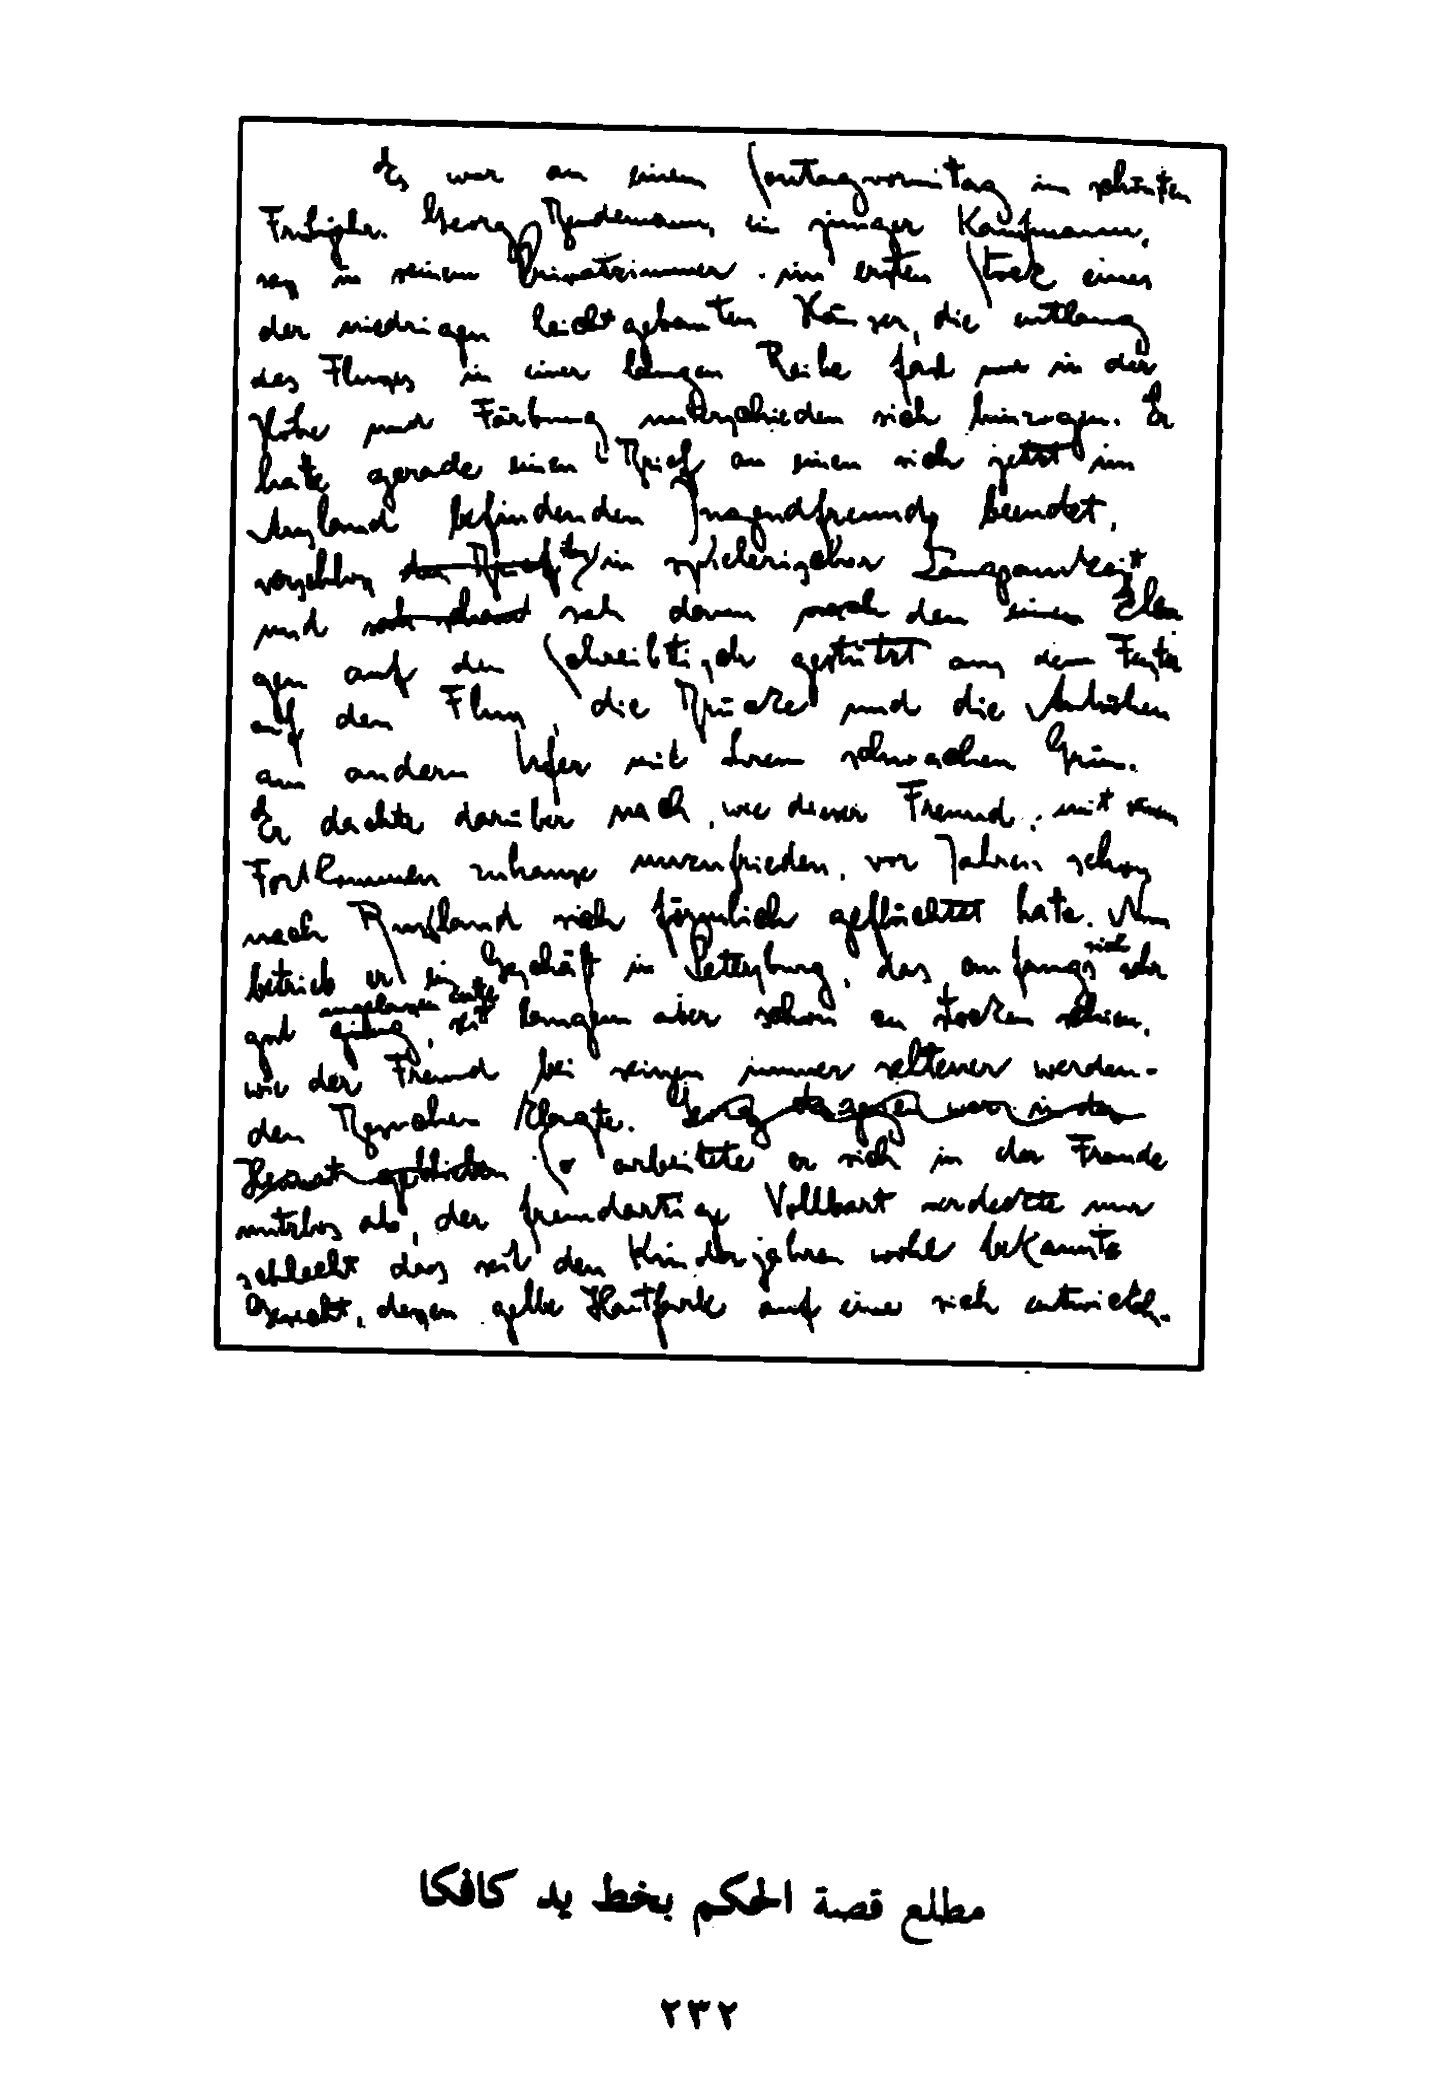 Es war an einem Sontagvormittag im schönsten
Frühjahr. Georg Bendemann, ein junger Kaufmann,
sass in seinem Privatzimmer im ersten Stock eines
der niedrigen leichtgebauten Häuser, die entlang
des Flusses in einer langen Reihe fast nur in der
Höhe und Färbung unterschieden sich hinzogen. Er
hatte gerade einen Brief an einen sich jetzt im
Ausland befindenden Jugendfreund beendet,
verschloss den Brief ihn in spielerischer Langsamkeit
und sah dann nach dem einen Ellen
gen auf den Schreibtisch gestützt aus dem Fenster
auf den Fluss, die Brücke und die Anhöhen
am andern Ufer mit ihrem schwachen Grün.
Er dachte darüber nach, wie dieser Freund, mit seinem
Fortkommen zuhause unzufrieden, vor Jahren schon
nach Russland sich förmlich geflüchtet hatte. Nun
betrieb er ein Geschäft in Petersburg, das anfangs sich sehr
gut angelassen hatte, seit langem aber schon zu stocken schien,
wie der Freund bei seinen immer seltener werden-
den Besuchen klagte. Georg dagegen war in der
Heimat geblieben So arbeitete er sich in der Fremde
nutzlos ab, der fremdartige Vollbart verdeckte nur
schlecht das seit den Kinderjahren wohl bekannte
Gesicht, dessen gelbe Hautfarbe auf eine sich entwickeln-
مطلع قصة الحكم بخط يد كافكا
٢٣٢